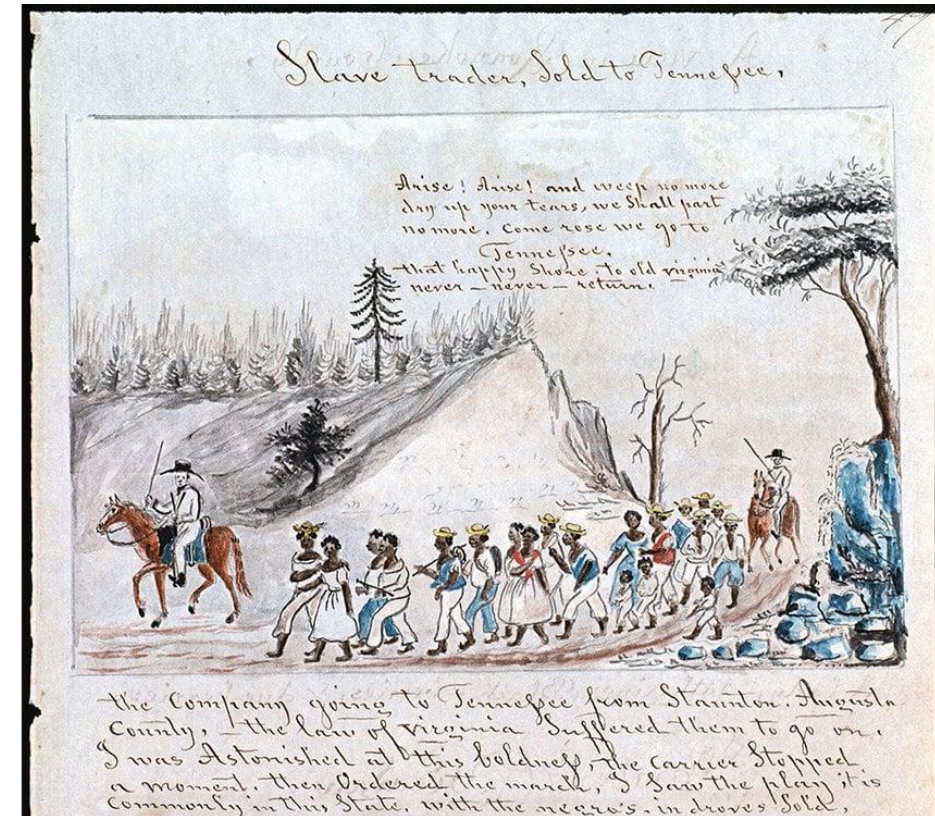 47
Slave trader, Sold to Tennessee,
Arise! Arise! and weep no more
dry up your tears, we Shall part
no more. Come rose we go to
Tennessee,
that happy Shore, to old virginia
never — never — return.
the Company going to Tennessee from Staunton. Augusta
County, — the law of virginia Suffered them to go on.
I was Astonished at this boldness, the carrier Stopped
a moment. then Ordered the march, I Saw the play, it is
Commonly in this State, with the negro's. in droves Sold,